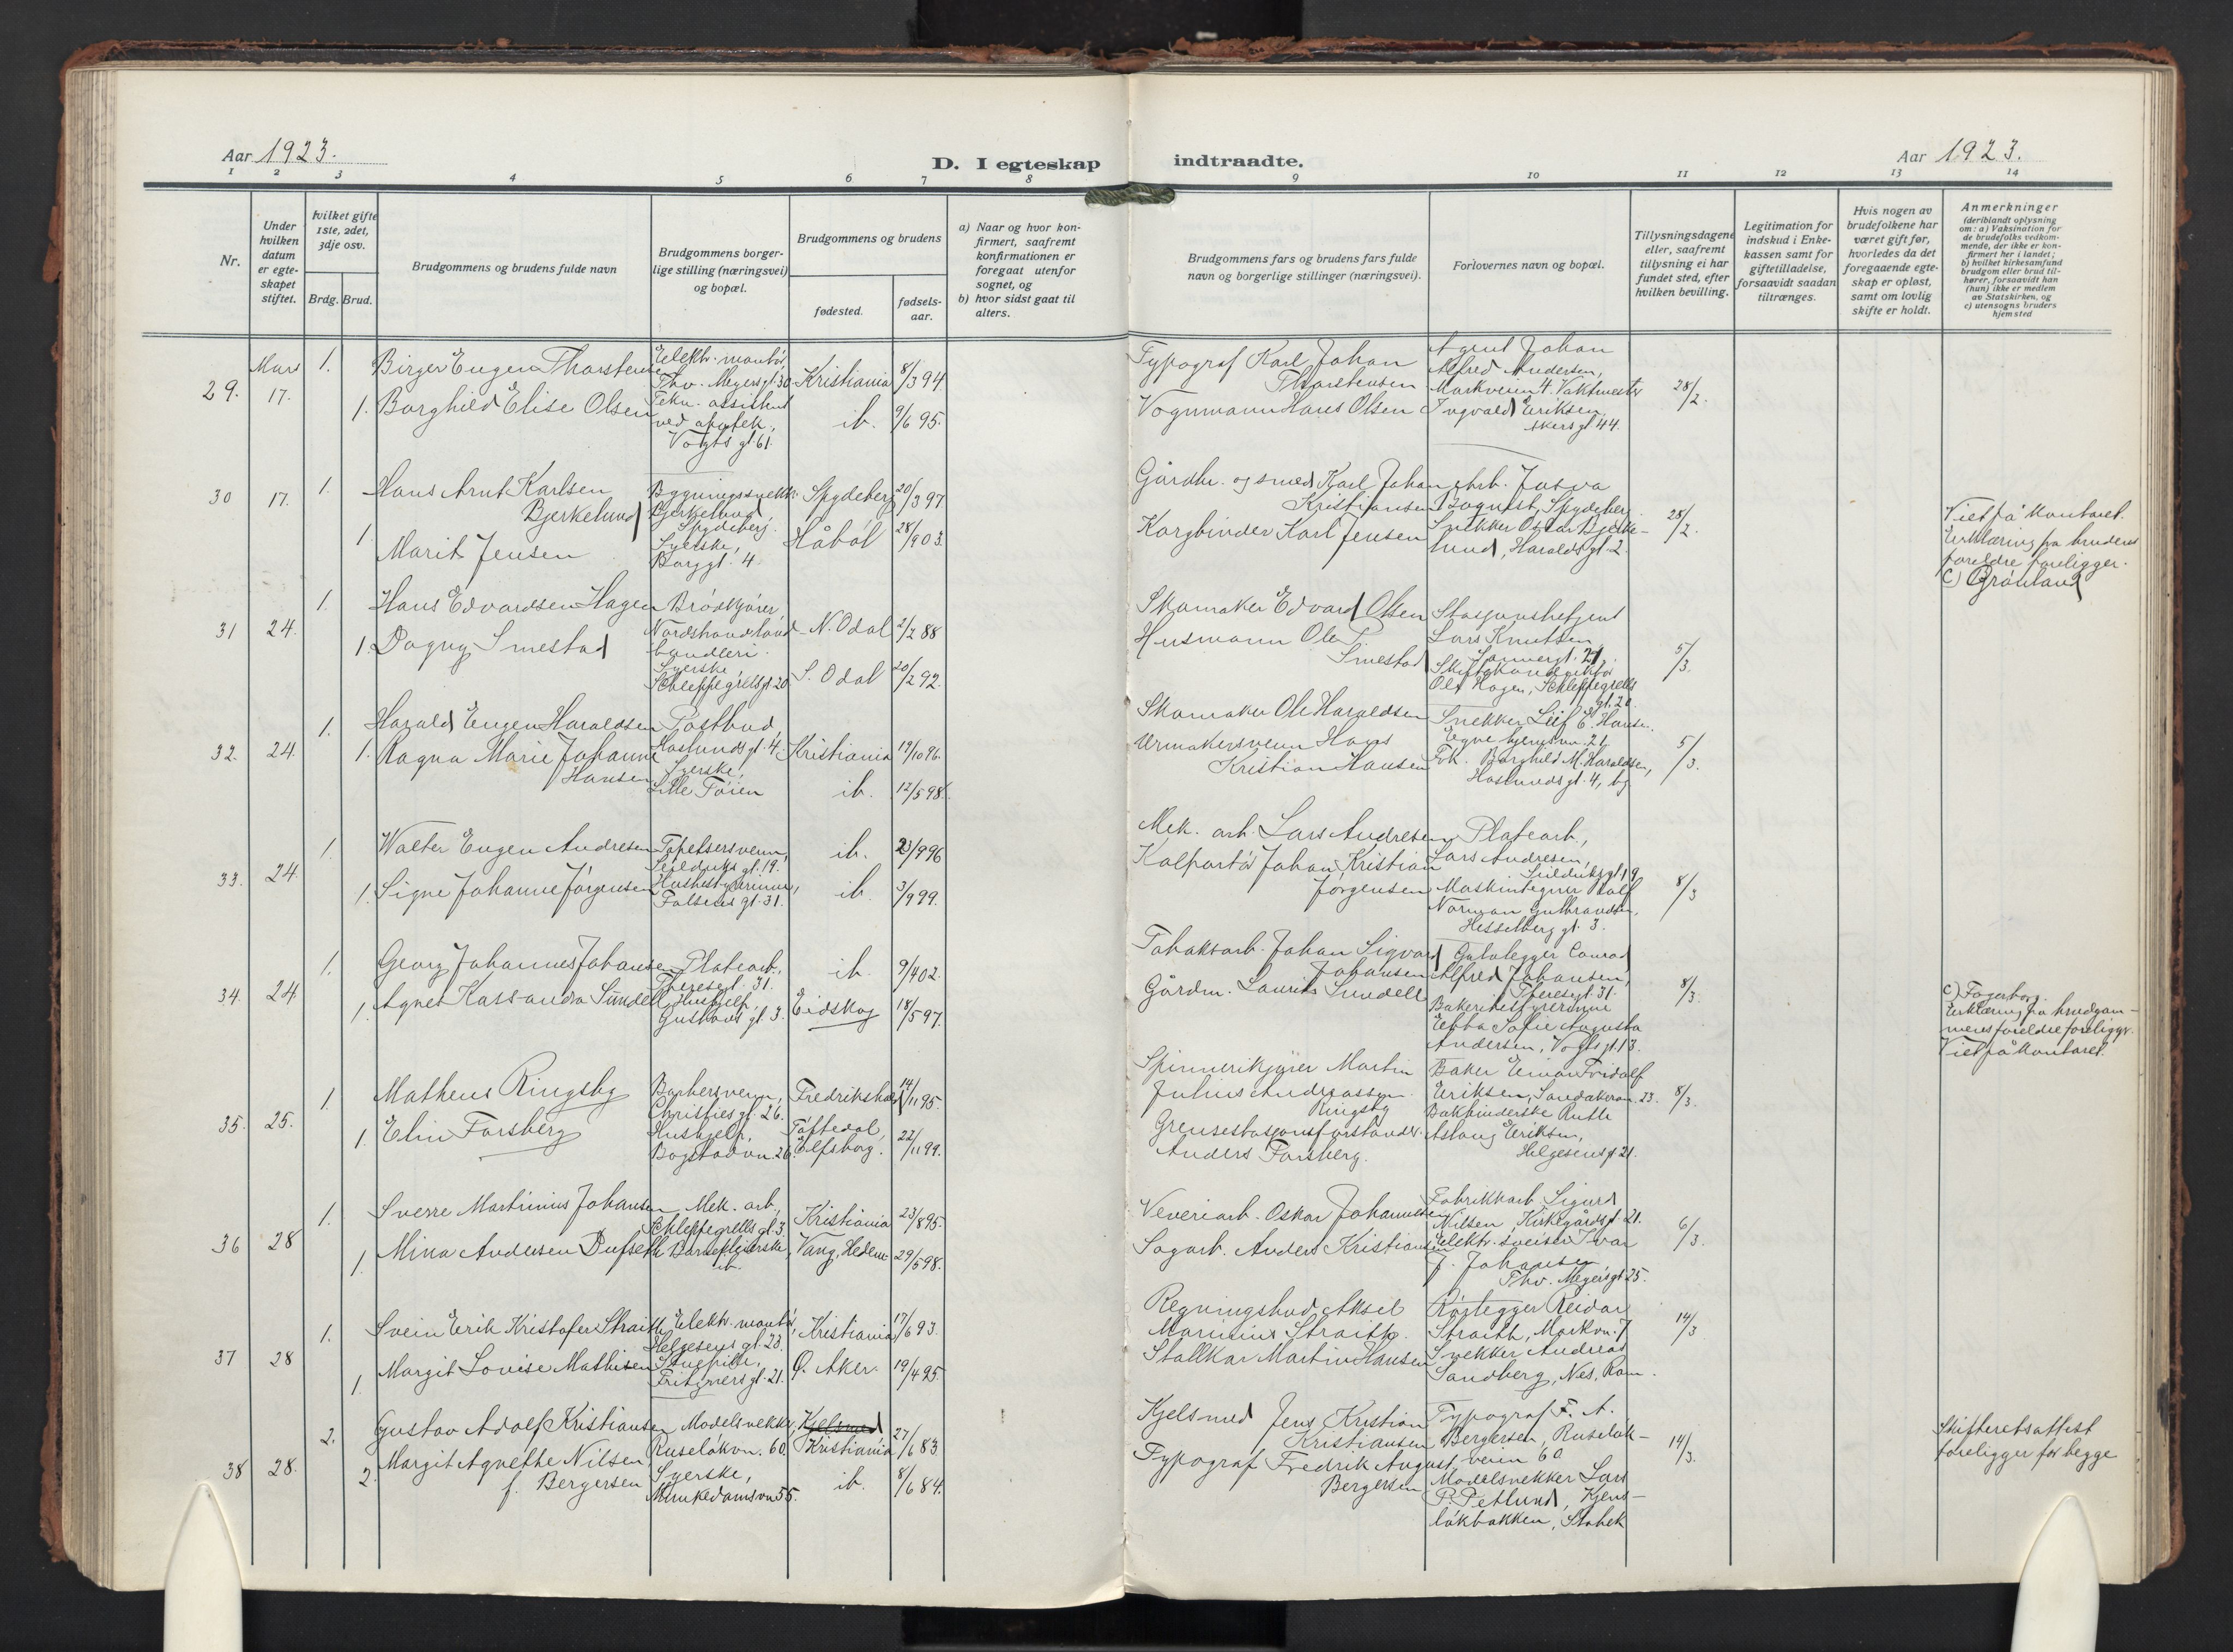 Aar 1923.
D. I egteskap indtraadte.
Aar 1923.
1 2 3 4 5 6 7 8 9 10 11 12 13 14
Nr.
Under hvilken datum er egte-skapet stiftet.
hvilket gifte 1ste, 2det, 3dje osv.
Brdg. Brud.
Brudgommens og brudens fulde navn
Brudgommens borger-lige stilling (næringsvei) og bopæl.
Brudgommens og brudens
fødested.
fødsels-aar.
a) Naar og hvor kon-firmert, saafremt konfirmationen er foregaat utenfor sognet, og
b) hvor sidst gaat til alters.
Brudgommens fars og brudens fars fulde navn og borgerlige stillinger (næringsvei).
Forlovernes navn og bopæl.
Tillysningsdagene eller, saafremt tillysning ei har fundet sted, efter hvilken bevilling.
Legitimation for indskud i Enke-kassen samt for giftetilladelse, forsaavidt saadan tiltrænges.
Hvis nogen av brudefolkene har været gift før, hvorledes da det foregaaende egte-skap er opløst, samt om lovlig skifte er holdt.
Anmerkninger (deriblandt oplysning om: a) Vaksination for de brudefolks vedkom-mende, der ikke er kon-firmert her i landet; b) hvilket kirkesamfund brudgom eller brud til-hører, forsaavidt han (hun) ikke er medlem av Statskirken, og c) utensogns bruders hjemsted
29. Mars 17. 1. Birger Eugen Thorstensen
Elektr. montör, Thv. Meyersgt. 30
Kristiania 8/3 94
1. Borghild Elise Olsen
Tekn. assistent ved apotek, Vogts gt. 61.
ib. 9/6 95.
Typograf Karl Johan Thorstensen
Vognmann Hans Olsen
Agent Johan Alfred Andersen, Markveien 4. Vaktmester
Ingvald Eriksen, Akersgt 44.
28/2.
30 17. 1. Hans Arnt Karlsen Bjerkelund
Bygningssnekk. Bjerkelund, Spydeberg.
Spydeberg 20/3 97
1. Marit Jensen
Syerske, Borggt. 4
Håböl 28/1 903.
Gårdbr. og smed Karl Johan Kristiansen
Korgbinder Karl Jensen
Bogvist, Spydeberg.
Snekker Oskar Bjerke-lund, Haralds gt. 2.
28/2.
Viet på kontoret.
Erklæring fra brudens foreldre foreligger.
C) Grönland
31 24. 1. Hans Edvardsen Hagen
Brödkjörer,
N. Odal 2/2 88
1. Dagny Smestad
Syerske Schleppegrells gt. 20.
S. Odal 20/2 92.
Skomaker Edvard Olsen
Husmann Ole P. Smestad
Stasjonsbetjent Lars Knutsen, Sannergt. 21.
Olaf Hagen, Schleppegrells gt. 20
5/3.
32. 24. 1. Harald Eugen Haraldsen
Postbud, Haslunds gt. 4.
Kristiania 19/10 96.
1. Ragna Marie Johanne Hansen
Syerske, Lille Töien
ib. 12/5 98.
Skomaker Ole Haraldsen
Urmakersvenn Hans Kristian Hansen
Snekker Leif E. Hansen.
Egne hjemsvn. 21.
Frk. Borghild M. Haraldsen, Haslunds gt. 4,
5/3.
33. 24. 1. Walter Eugen Andresen
Tapetsersvenn, Seilduks gt. 19.
ib. 23/9 96
1. Signe Johanne Jörgensen
Husbestyrerinne, Falsens gt. 31.
ib. 3/9 99.
Mek. arb. Lars Andresen
Kolportör Johan Kristian Jörgensen
Platearb., Lars Andresen, Seilduksgt. 19
Maskintegner Rolf Norman Gulbrandsen, Hesselberg gt. 3.
8/3
34. 24 1. Georg Johannes Johansen
Platearb., Theresegt. 31.
ib. 9/4 02.
1. Agnet Kassandra Sundell
Hushjelp, Gustavs gt. 3.
Eidskog 18/5 97.
Tobaksarb. Johan Sigvard Johansen
Gårdm. Laurits Sundell
Gulvlegger Conrad Alfred Johansen, Theresegt. 31.
Bakeribestyrerinne Ebba Sofie Augusta Andersen, Vogts gt. 13.
8/3.
c) Fagerborg.
Erklæring fra brudgom-mens foreldre foreligger.
Viet på kontoret.
35. 25. 1. Matheus Ringsby
Barbersvenn, Christies gt. 26.
Fredrikshald 14/11 95.
1. Elin Forsberg
Hushjelp, Bogstadvn. 26.
Töftedal, Elfsborg. 22/11 99.
Spinnerikjörer Martin Julius Andreassen Ringsby
Grensestasjonsforstander Anders Forsberg.
Baker Einar Fridolf Eriksen, Sandakervn. 23.
Bokbinderske Ruth Aslaug Eriksen, Helgesens gt 21.
8/3.
36 28 1. Sverre Martinius Johansen
Mek. arb., Schleppegrells gt. 3.
Kristiania 23/8 95.
1. Mina Andersen Dufseth
Barnepleierske, ib.
Vang, Hedem. 29/5 98.
Veveriarb. Oskar Johannesen
Sagarb. Anders Kristiansen
Fabrikkarb. Sigurd Nilsen, Kirkegårdsgt. 21.
Elektr. sveiser Ivar J. Johansen Thv. Meyersgt 25.
6/3.
37 28 1. Svein Erik Kristofer Straith
Elektr. montör, Helgesens gt. 23.
Kristiania 17/6 93.
1. Margit Lovise Mathisen
Stuepike, Fritzners gt. 21.
Ø. Aker. 19/4 95.
Regningsbud Aksel Marinius Straith.
Stallkar Martin Hansen
Rörlegger Reidar Straith, Markvn. 7
Snekker Andreas Sandberg, Nes, Rom.
14/3
38 28. 2. Gustav Adolf Kristiansen
Modelsnekker, Ruselökvn. 60.
Kjelsmed Kristiania 27/6 83
2. Margit Agnethe Nilsen f. Bergersen
Syerske, Munkedamsvn 55.
ib. 8/6 84.
Kjelsmed Jens Kristian Kristiansen
Typograf Fredrik August Bergersen
Typograf F. A. Bergersen, Ruselök-veien 60
Modelsnekker Lars P. Petlund, Kjens-lökbakken, Stabek
14/3.
Skifteretsattest foreligger for begge